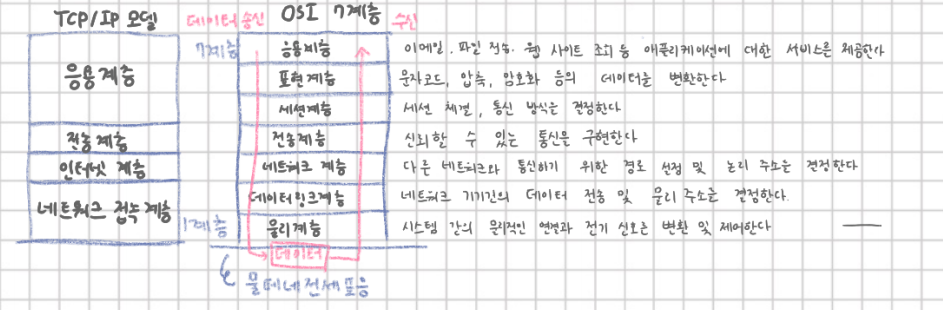 TCP/IP 모델 데이터 송신 OSI 7계층 수신
7계층 응용계층 이메일, 파일 전송, 웹 사이트 조회 등 애플리케이션에 대한 서비스를 제공한다
응용계층 표현계층 문자코드, 압축, 암호화 등의 데이터를 변환한다
세션계층 세션 체결, 통신 방식을 결정한다
전송계층 전송계층 신뢰할 수 있는 통신을 구현한다
인터넷 계층 네트워크 계층 다른 네트워크와 통신하기 위한 경로 선정 및 논리 주소를 결정한다
네트워크 접속 계층 데이터링크계층 네트워크 기기간의 데이터 전송 및 물리 주소를 결정한다.
1계층 물리계층 시스템 간의 물리적인 연결과 전기 신호를 변환 및 제어한다
데이터
물데네전세표응